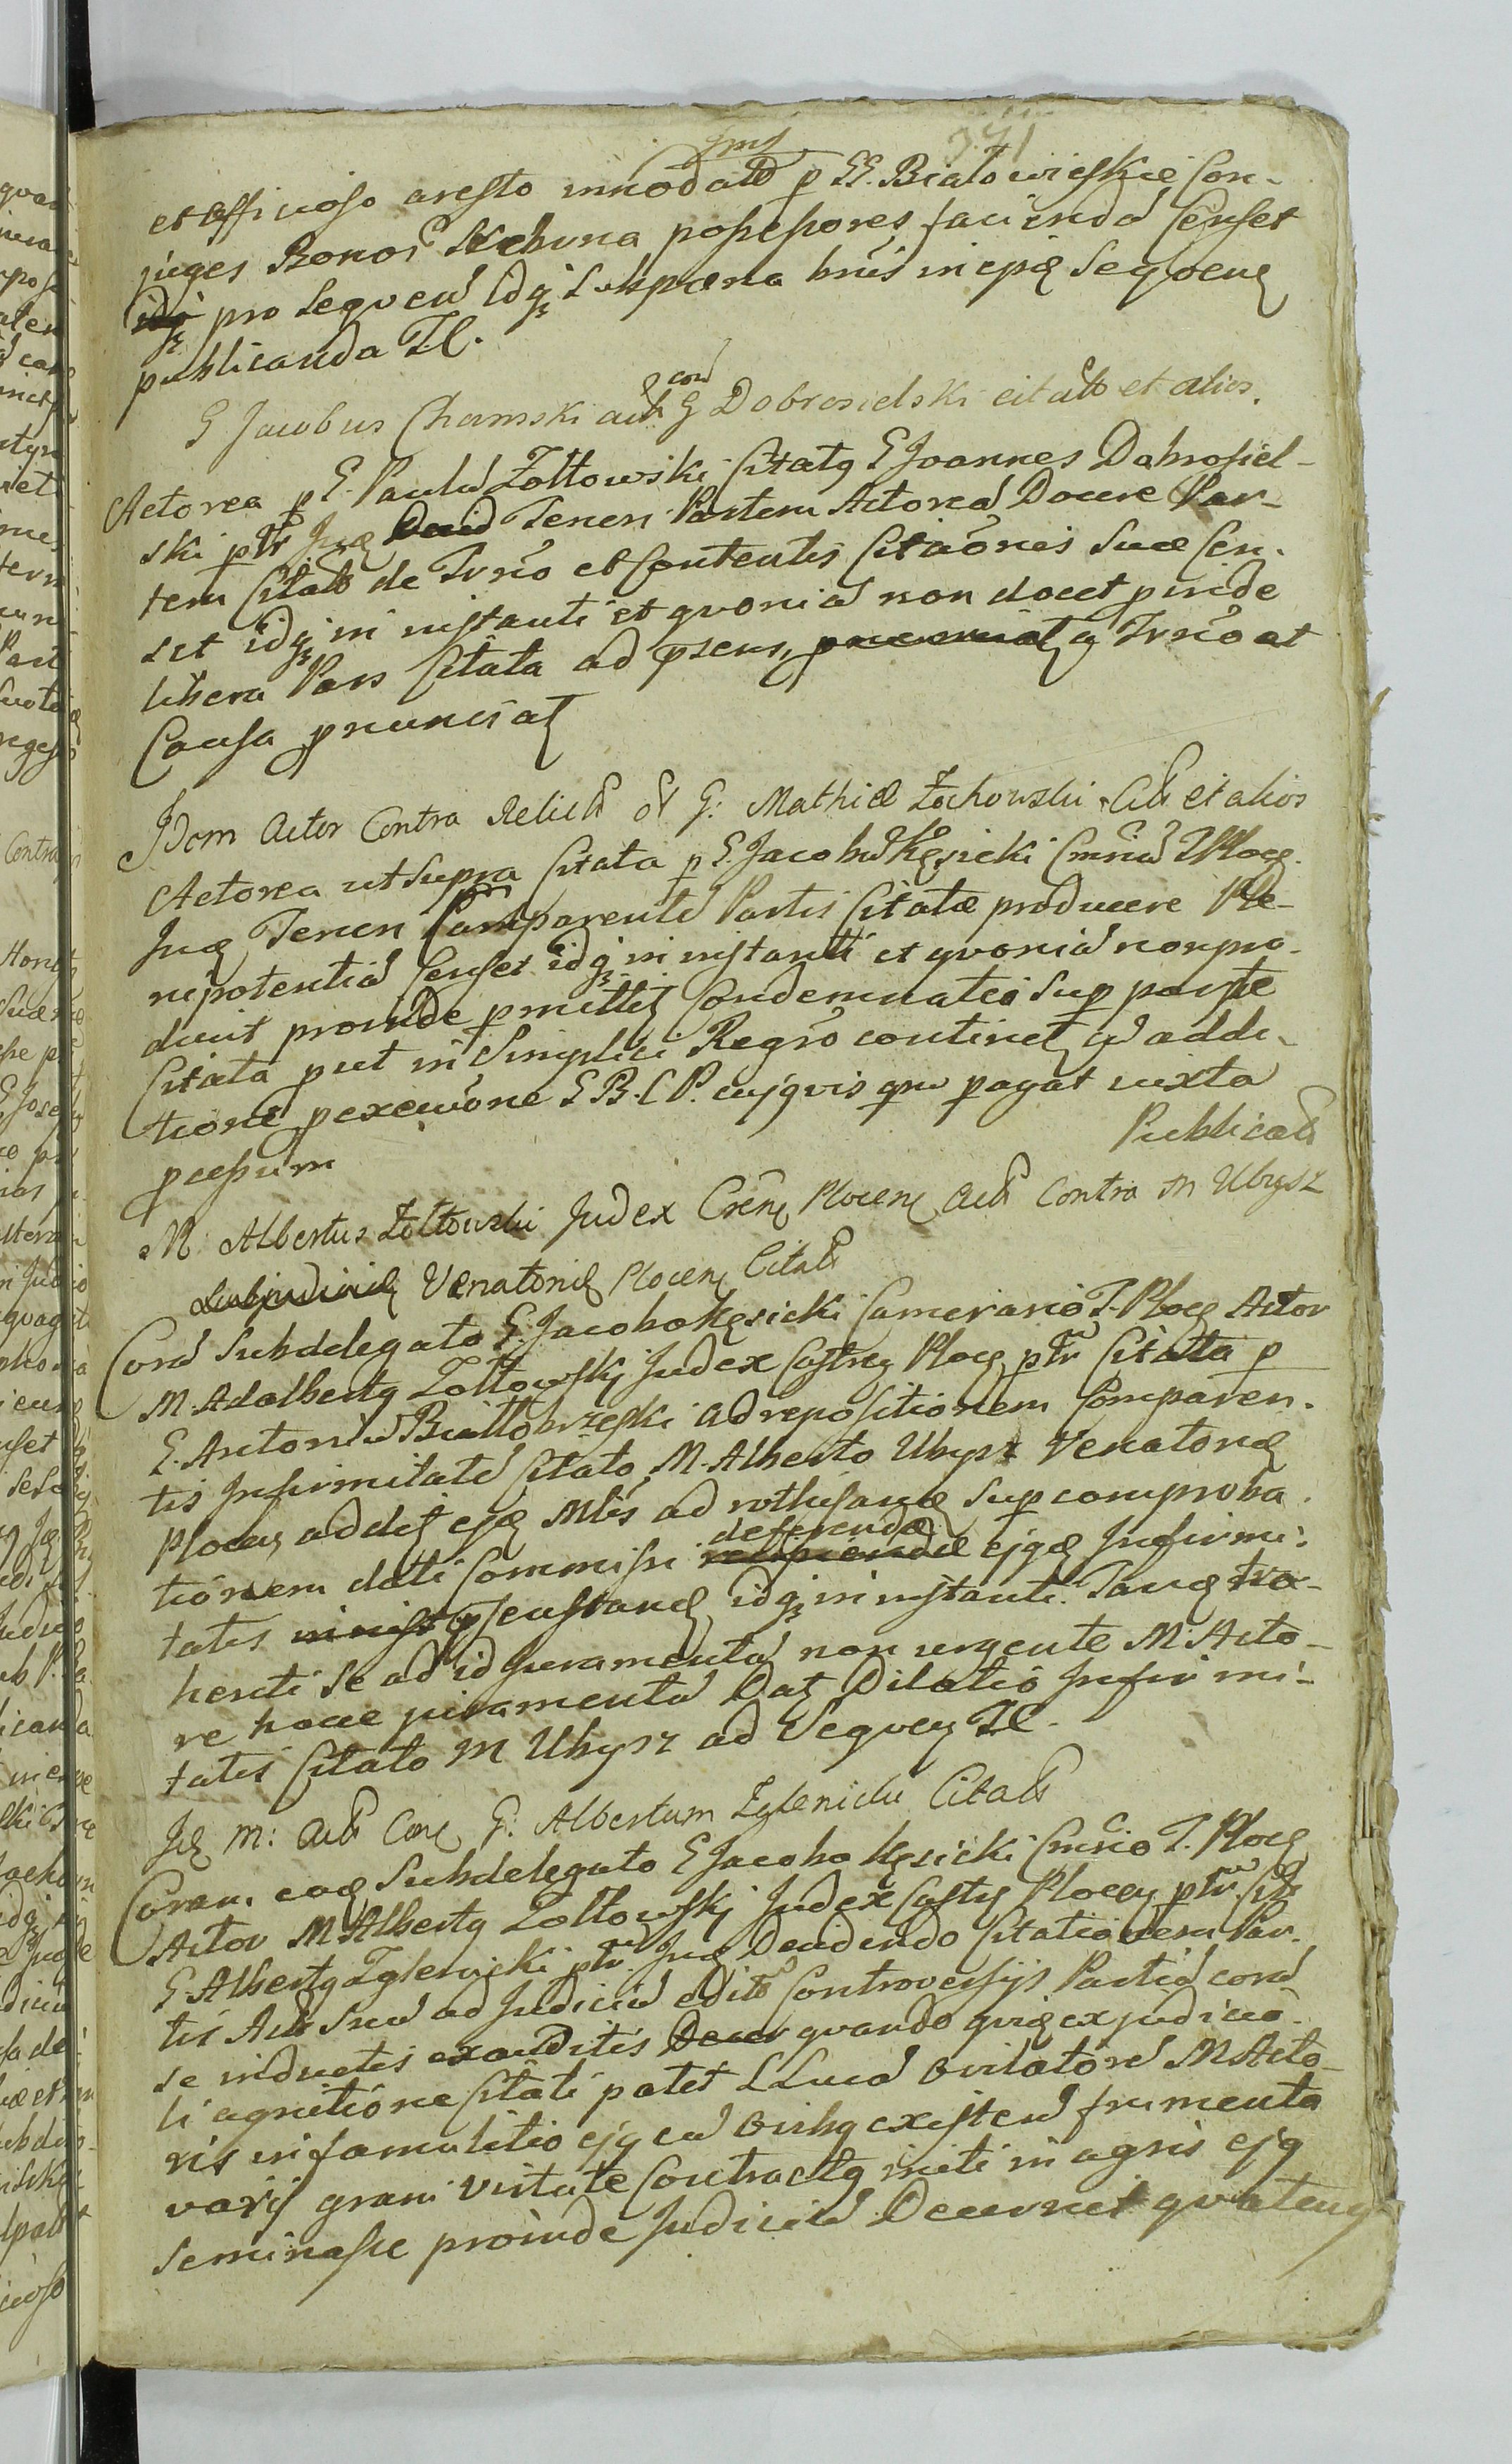 341
et officioso aresto innodato p GG. Białowieskie Con-
juges Bonor Stchuna possessores faciendo Censet
pro sequen idq subpoena huis in cpis Seqoens
publicanda T.C.
G Jacobus Chamski act con G Dobrosielski citato et alios.
Actorea p G. Paulu Zołtowski Citatq G Joannes Dobrosiel-
ski ptr Juq Tenen Partem Actorea Docere Par-
tem Citato de Trno et Contentis Citaonis Suae Cen-
set idq in instanti et qvonia non docet pinde
libera Pars Citata ad psens, a Trno et
Causa pnunciat
Idem Actor Contra Relict ol G: Mathiae Żochowski Cit et alios
Actorea ut supra Citata p G. Jacobu Kęsicki Cmriu T Ploce
Juq Tenen Comparente Partis Citatae producere Ple-
nipotentia Censet idq in instanti et qvonia non pro-
ducit proinde pmittit Condemnatio Sup parte
Citata put in Simplici Regro continet cu addi-
tione pexecuone G B. C P. cujqvis qru pagat iuxta
pcessum
Publicat
M Albertus Zołtowski Judex Crens Plocens act Contra M Ubysz
Venatorid Plocens Citat
Cora Subdelegato G. Jacobo Kęsicki Camerario T. Ploce Actor
M. Adalbertq Zołtowskj Judex Castrens Ploce ptr Citata p
G. Antoniu Białłobrzeski ad repositionem Comparen-
tis Infirmitate Citato M. Alberto Ubysz Venatore
Plocens addit ejq Mtis ad rothisand Sup comproba-
tionem dati Commissi deferenda ejqe Infirmi-
tatis idq in instanti. Tanq tra-
henti se ad id Juramentu non urgente M Acto-
re hocce juramentu Dat Dilatio Infirmi-
tatis Citato M Ubysz ad Seqvens T.C.
Id M: act Con G: Albertum Zglenicki Citat
Coram eoq Subdelegato G Jacobo Kęsicki Cmrio T. Ploce
Actor M Albertq Zołtowskj Judex Castrens Plocens ptr. Cit
G. Albertq Zglenicki ptr. Juq Decidendo Citationem Par-
tis Act Sua ad Judiciu edito Controversijs Partiu cora
se inductis exauditis qvando qviq ex judicio-
li agnitione Citati patet L Luca Ovilatore M Acto-
ris in famulitio ejq cu Ovibq existen frumenta
varij grani virtute Contractq initi in agris ejq
seminasse proinde Judiciu Decernit qvatenq